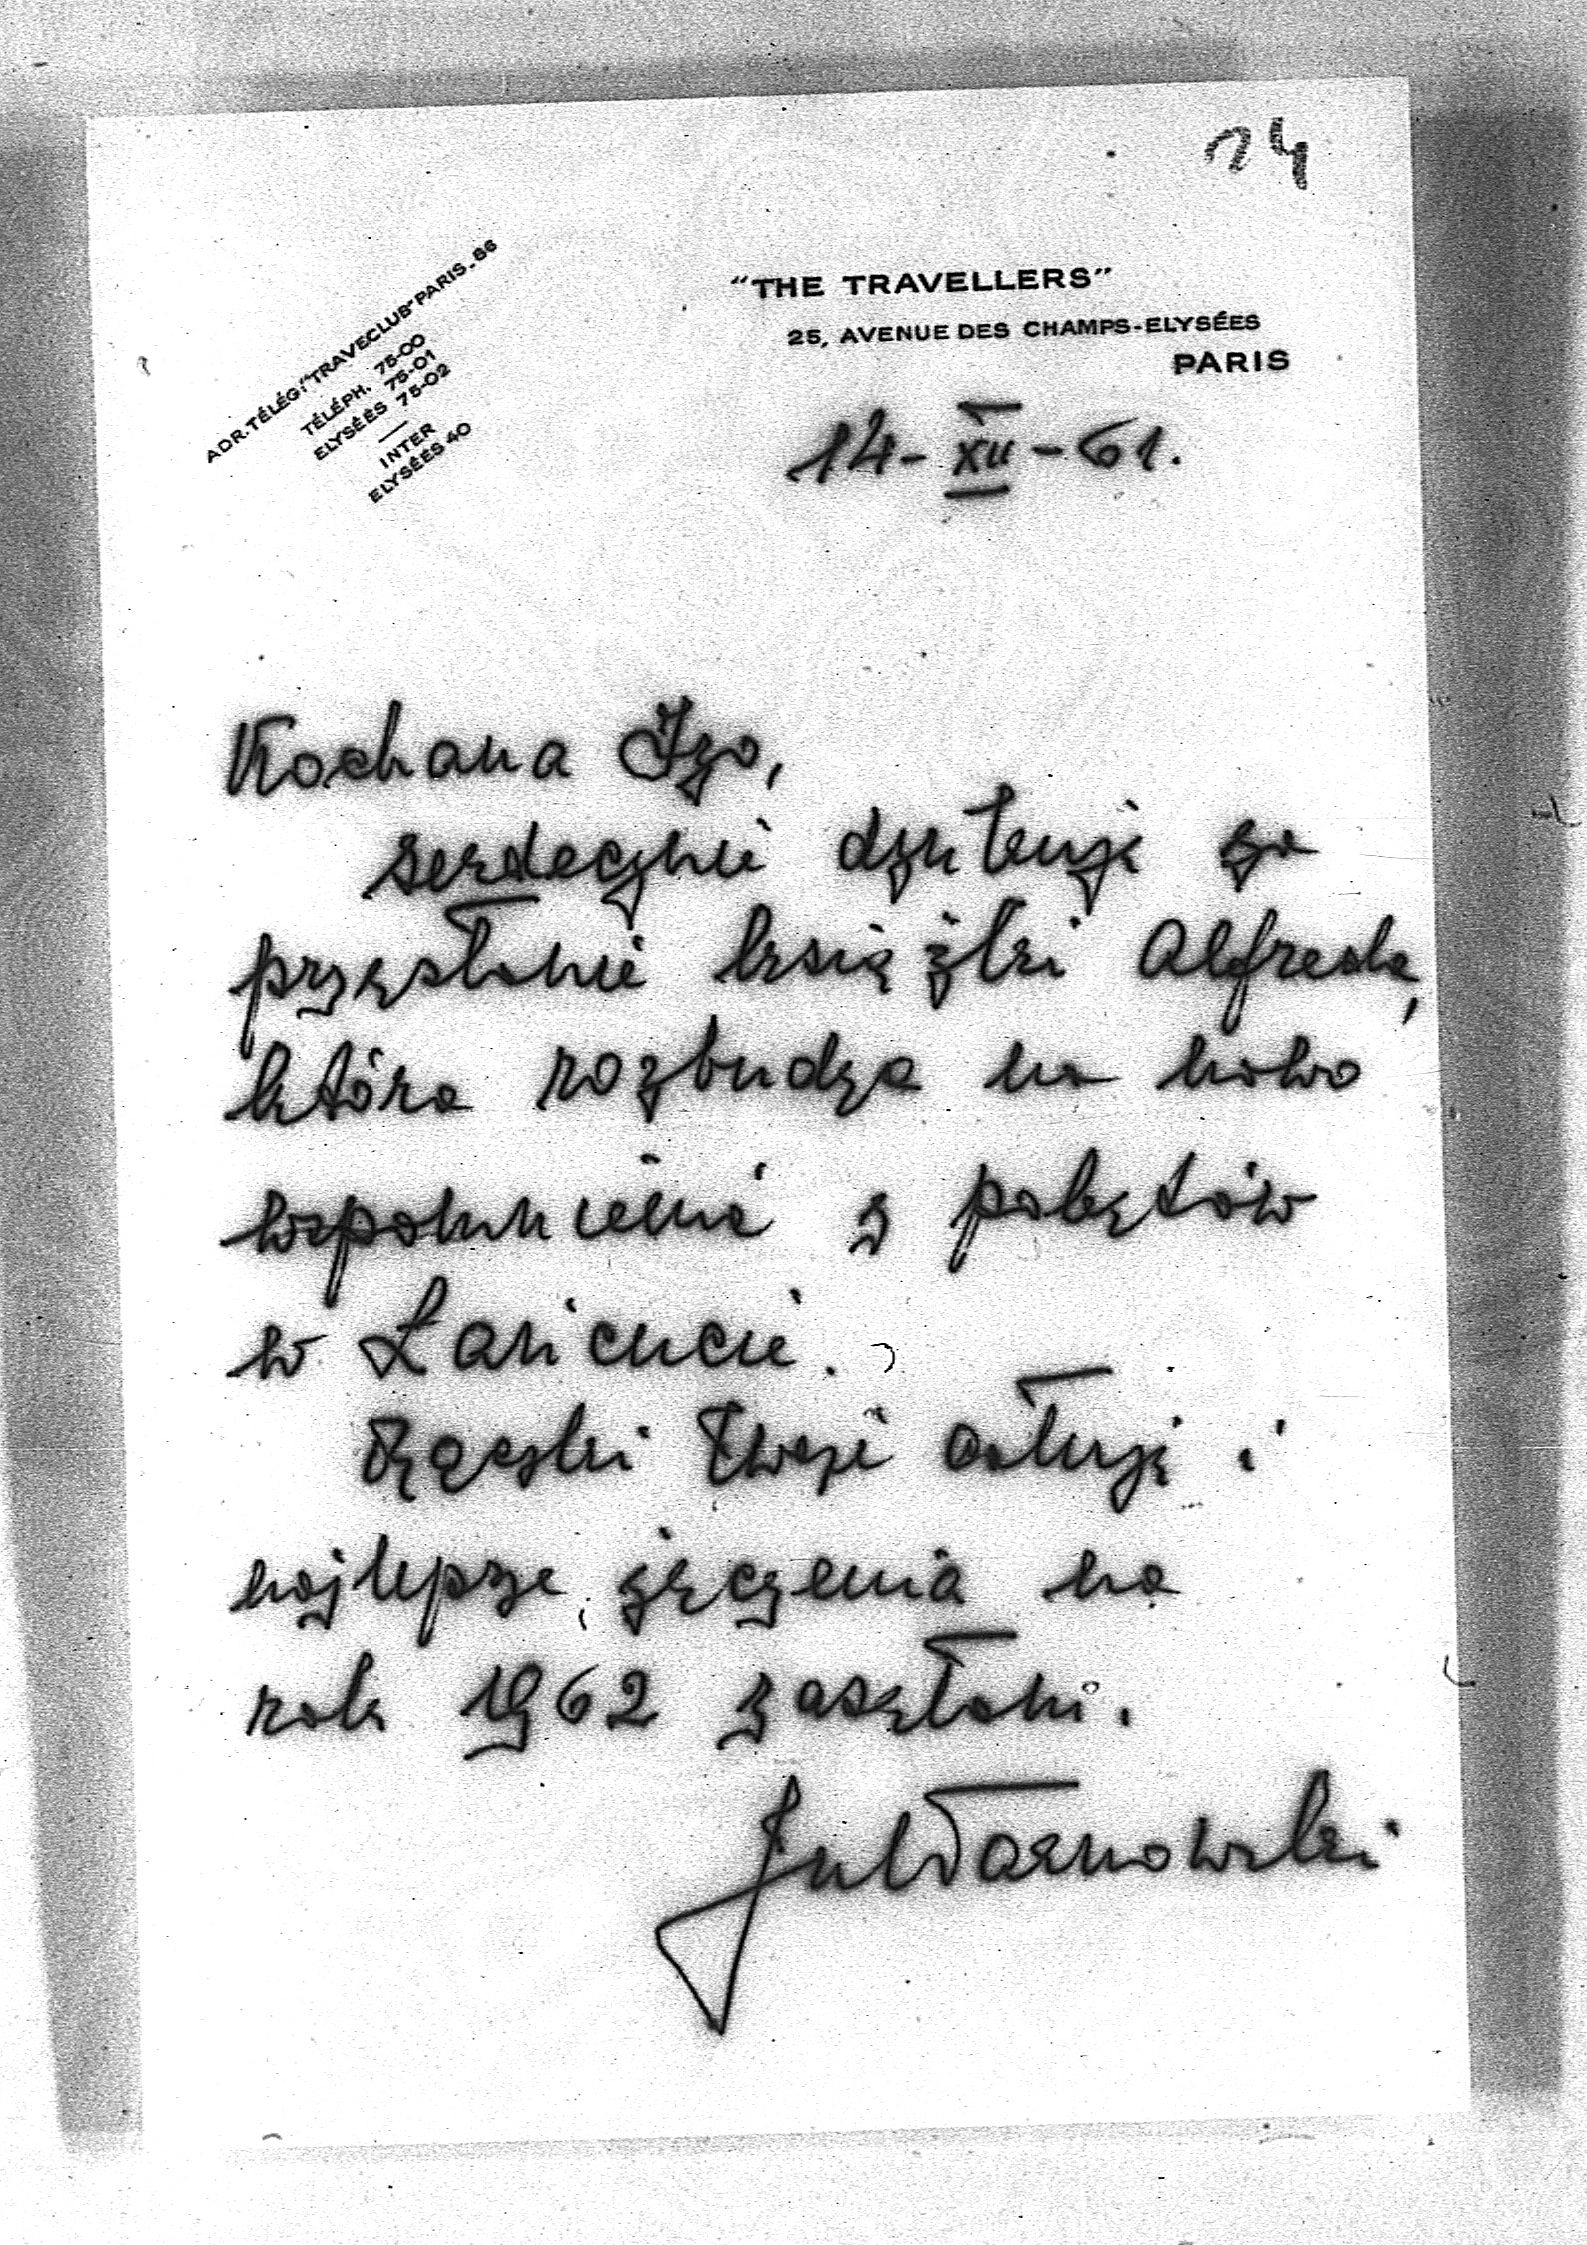 24
ADR. TÉLÉG: "TRAVECLUB" PARIS_86
TÉLÉPH. 75-00
75-01
ELYSÉES 75-02
INTER
ELYSÉES 40
"THE TRAVELLERS"
25, AVENUE DES CHAMPS-ELYSÉES
PARIS
14-XII-61.
Kochana Izo,
serdecznie dziękuję za
przysłanie książki Alfreda,
która rozbudza na nowo
wspomnienia z pobytów
w Łańcucie.
Rączki Twoje całuję i
najlepsze życzenia na
rok 1962 zasyłam.
Jul Tarnowski